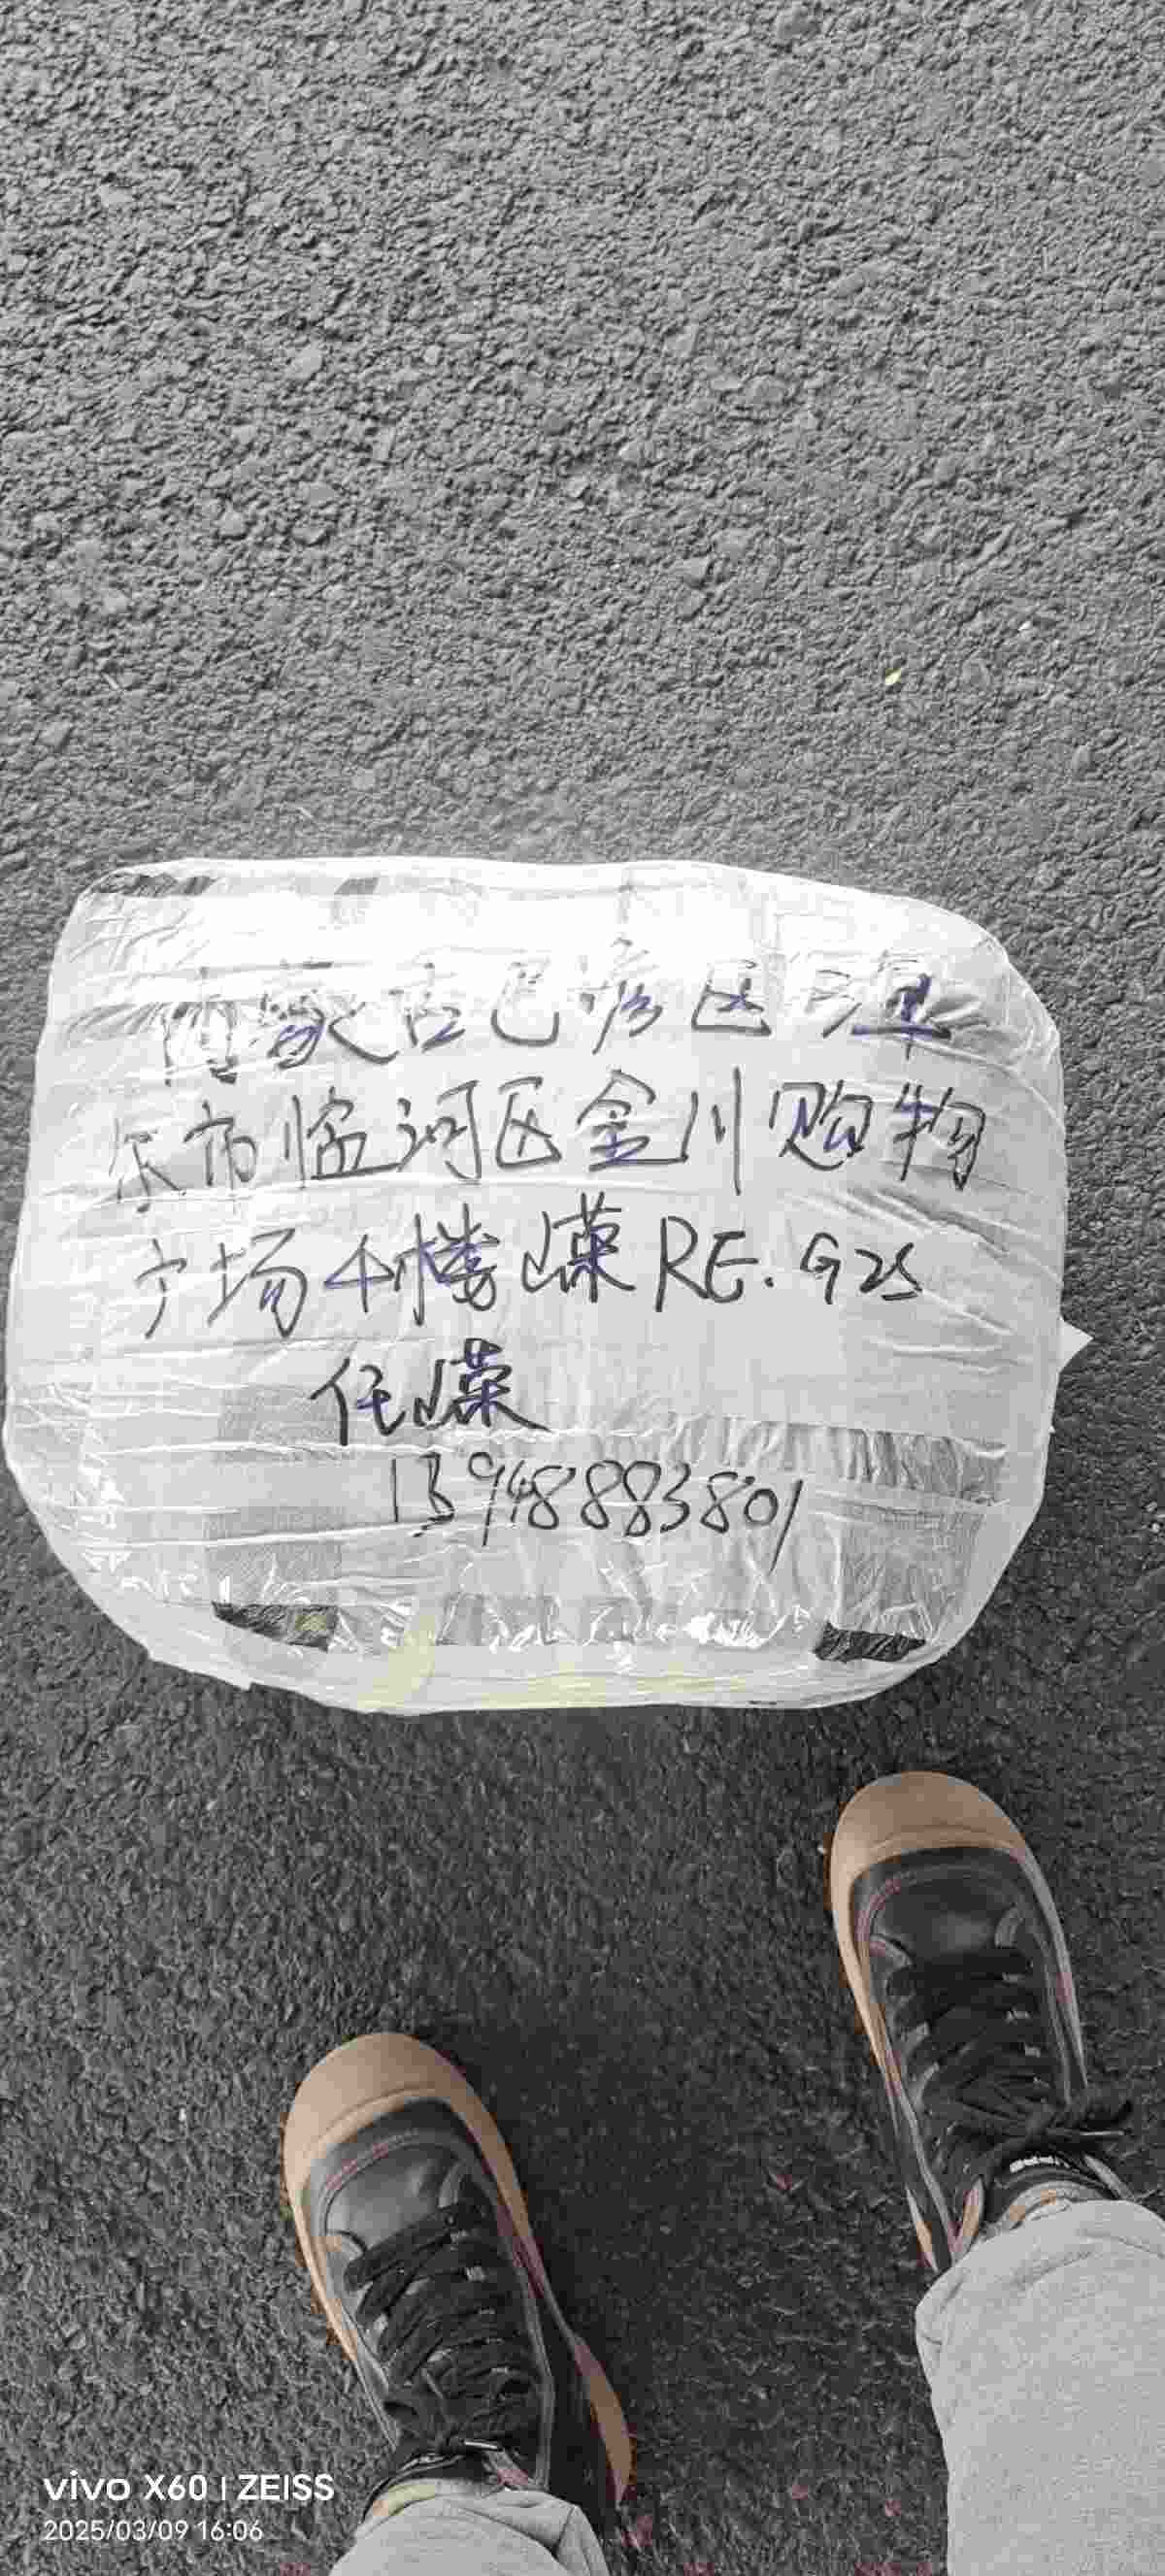 内蒙古巴彦区淖
尔市临河区金川购物
广场4楼 RE.G25
任
13948883801
vivo X60 | ZEISS
2025/03/09 16:06